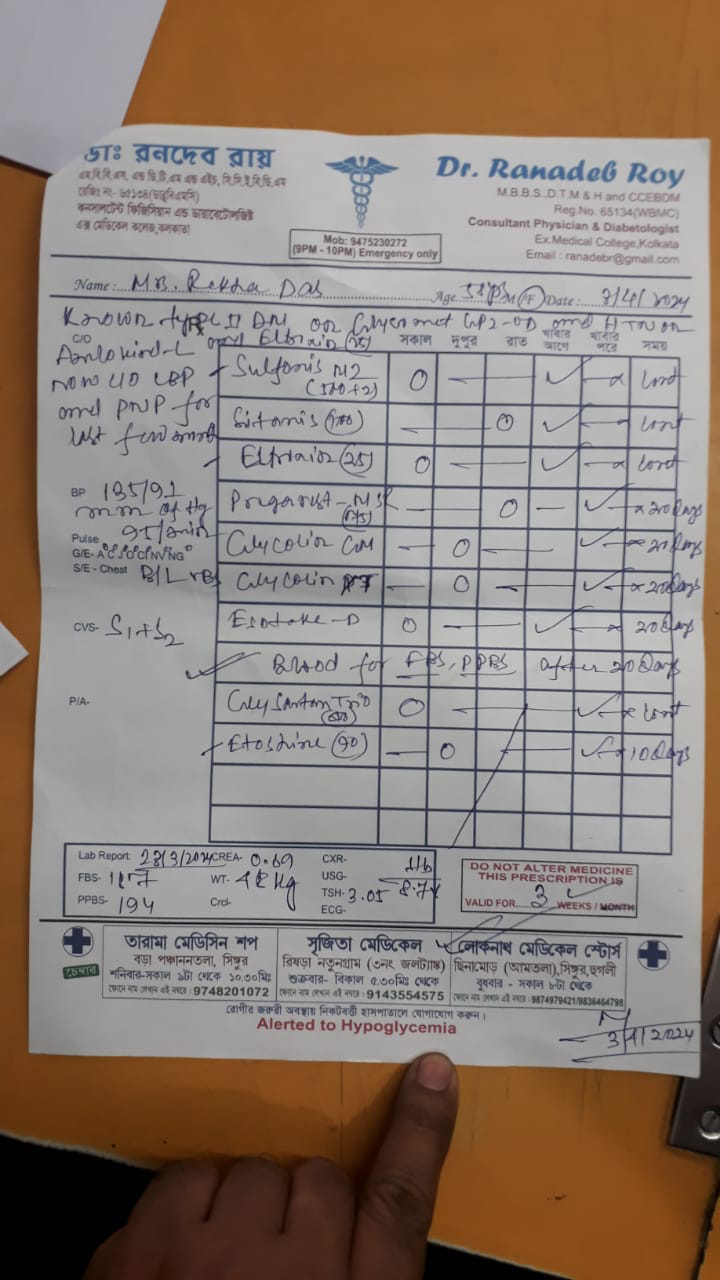 ডাঃ রনদেব রায়
এম.বি.বি.এস. এন্ড ডি.টি.এম এন্ড এইচ, সি.সি.ই.বি.ডি.এম
রেজিঃ নং- ৬৫১৩৪(ডাব্লুবিএমসি)
কনসালটেন্ট ফিজিসিয়ান এন্ড ডায়াবেটোলজিষ্ট
এক্স মেডিকেল কলেজ,কলকাতা
Mob: 9475230272
(9PM - 10PM) Emergency only
Dr. Ranadeb Roy
M.B.B.S.,D.T.M & H and CCEBDM
Reg.No. 65134(WBMC)
Consultant Physician & Diabetologist
Ex.Medical College,Kolkata
Email : ranadebr@gmail.com
Name : Mrs. Rekha Das Age 52yrs M/F Date : 3/4/2024
Known type II DM on Glycomet GP2 and HTN on
C/O Amlokind-L and
now c/o LBP
and for
last few
সকাল দুপুর রাত খাবার আগে খাবার পরে সময়
Sulfonis M2 (500+2) cont
Sitanis (100) cont
(25) cont
x 20 days
Glycolin x 20 days
Glycolin x 20 days
Esotake-D 20 days
Blood for FBS, PPBS after 20 days
Trio cont
Etoshine (90) x 10 days
BP 135/91
mm of Hg
Pulse 95/min
G/E- A°C°J°O°C°N°V°N°G°
S/E - Chest B/L VBS
CVS- S1+S2
P/A-
Lab Report: 28/3/2024 CREA- 0.69 CXR-
FBS- 117 WT- kg USG-
PPBS- 194 Crcl- TSH- 3.05
ECG-
DO NOT ALTER MEDICINE
THIS PRESCRIPTION IS
VALID FOR 3 WEEKS / MONTH
চেম্বার
তারামা মেডিসিন শপ
বড়া পঞ্চাননতলা, সিঙ্গুর
শনিবার-সকাল ৯টা থেকে ১০.৩০মিঃ
ফোনে নাম লেখান এই নম্বরে : 9748201072
সৃজিতা মেডিকেল
রিষড়া নতুনগ্রাম (৩নং জলট্যাঙ্ক)
শুক্রবার- বিকাল ৫.৩০মিঃ থেকে
ফোনে নাম লেখান এই নম্বরে : 9143554575
লোকনাথ মেডিকেল স্টোর্স
ছিনামোড় (আমতলা),সিঙ্গুর,হুগলী
বুধবার - সকাল ৮টা থেকে
ফোনে নাম লেখান এই নম্বরে : 9874979421/9836464798
রোগীর জরুরী অবস্থায় নিকটবর্ত্তী হাসপাতালে যোগাযোগ করুন।
Alerted to Hypoglycemia
3/4/2024